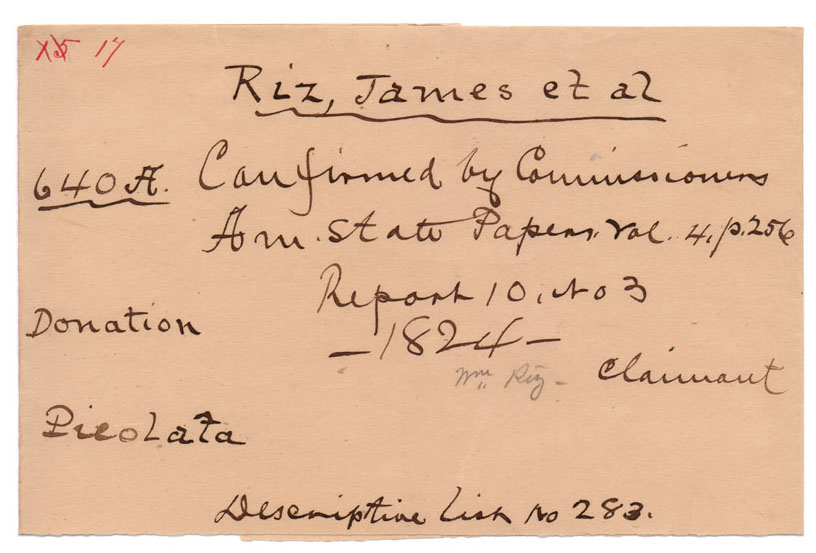 17
Riz, James et al
640 A. Confirmed by Commissioners
Am. State Papers. Vol. 4, p. 256
Report 10, No 3
Donation
- 1824 -
Wm Riz - Claimant
Picolata
Descriptive List No 283.